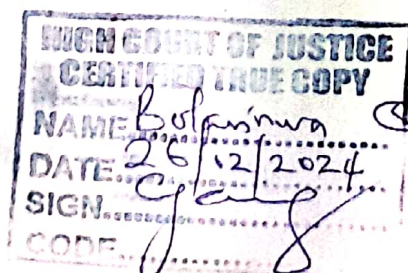 HIGH COURT OF JUSTICE
CERTIFIED TRUE COPY
NAME
DATE 26/12/2024
SIGN
CODE